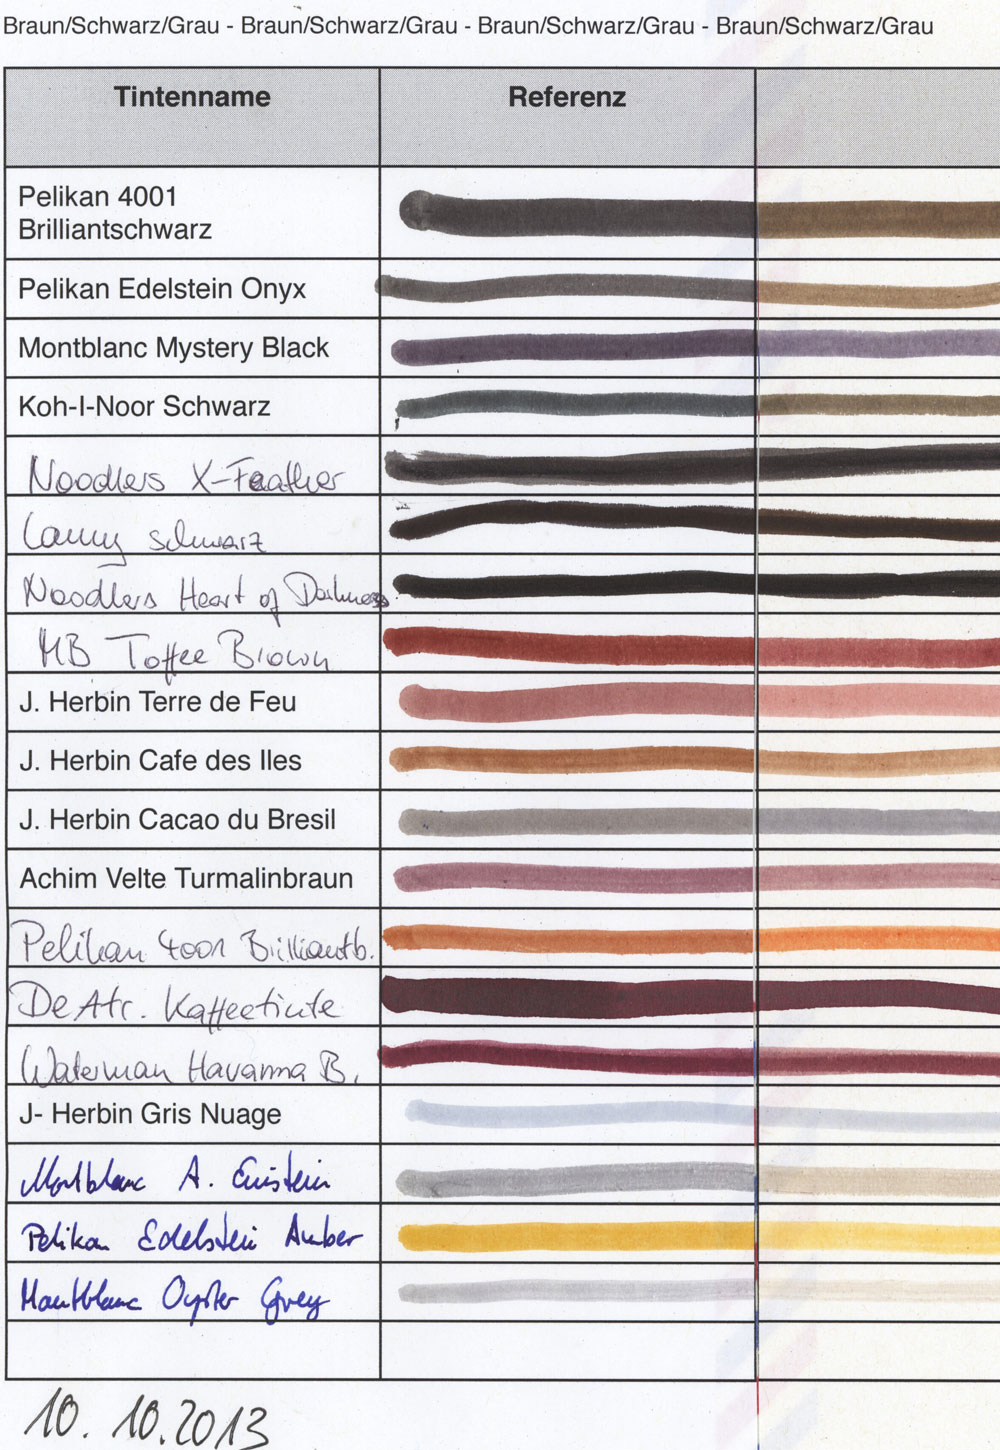 Braun/Schwarz/Grau - Braun/Schwarz/Grau - Braun/Schwarz/Grau - Braun/Schwarz/Grau
Tintenname Referenz
Pelikan 4001
Brilliantschwarz
Pelikan Edelstein Onyx
Montblanc Mystery Black
Koh-I-Noor Schwarz
Noodlers X-Feather
Lamy schwarz
Noodlers Heart of Darkness
MB Toffee Brown
J. Herbin Terre de Feu
J. Herbin Cafe des Iles
J. Herbin Cacao du Bresil
Achim Velte Turmalinbraun
Pelikan 4001 Brilliantb.
De Atr. Kaffeetinte
Waterman Havanna B.
J- Herbin Gris Nuage
Montblanc A. Einstein
Pelikan Edelstein Amber
Montblanc Oyster Grey
10. 10.2013